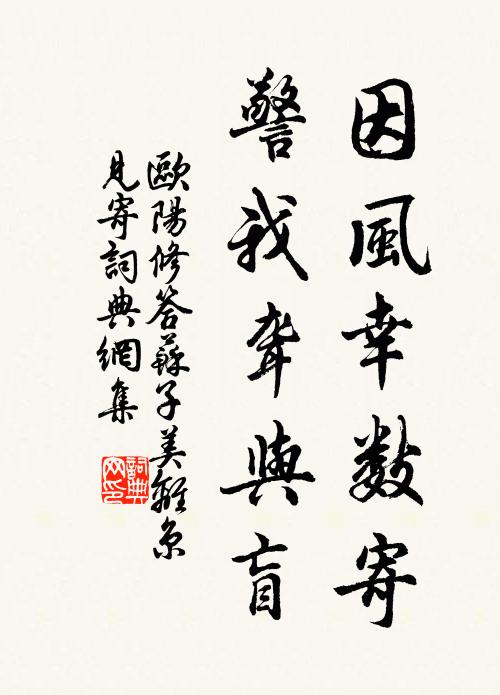 因風幸數寄
警我聾與盲
歐陽修答蘇子美離京
見寄詞典網集
詞典
网印